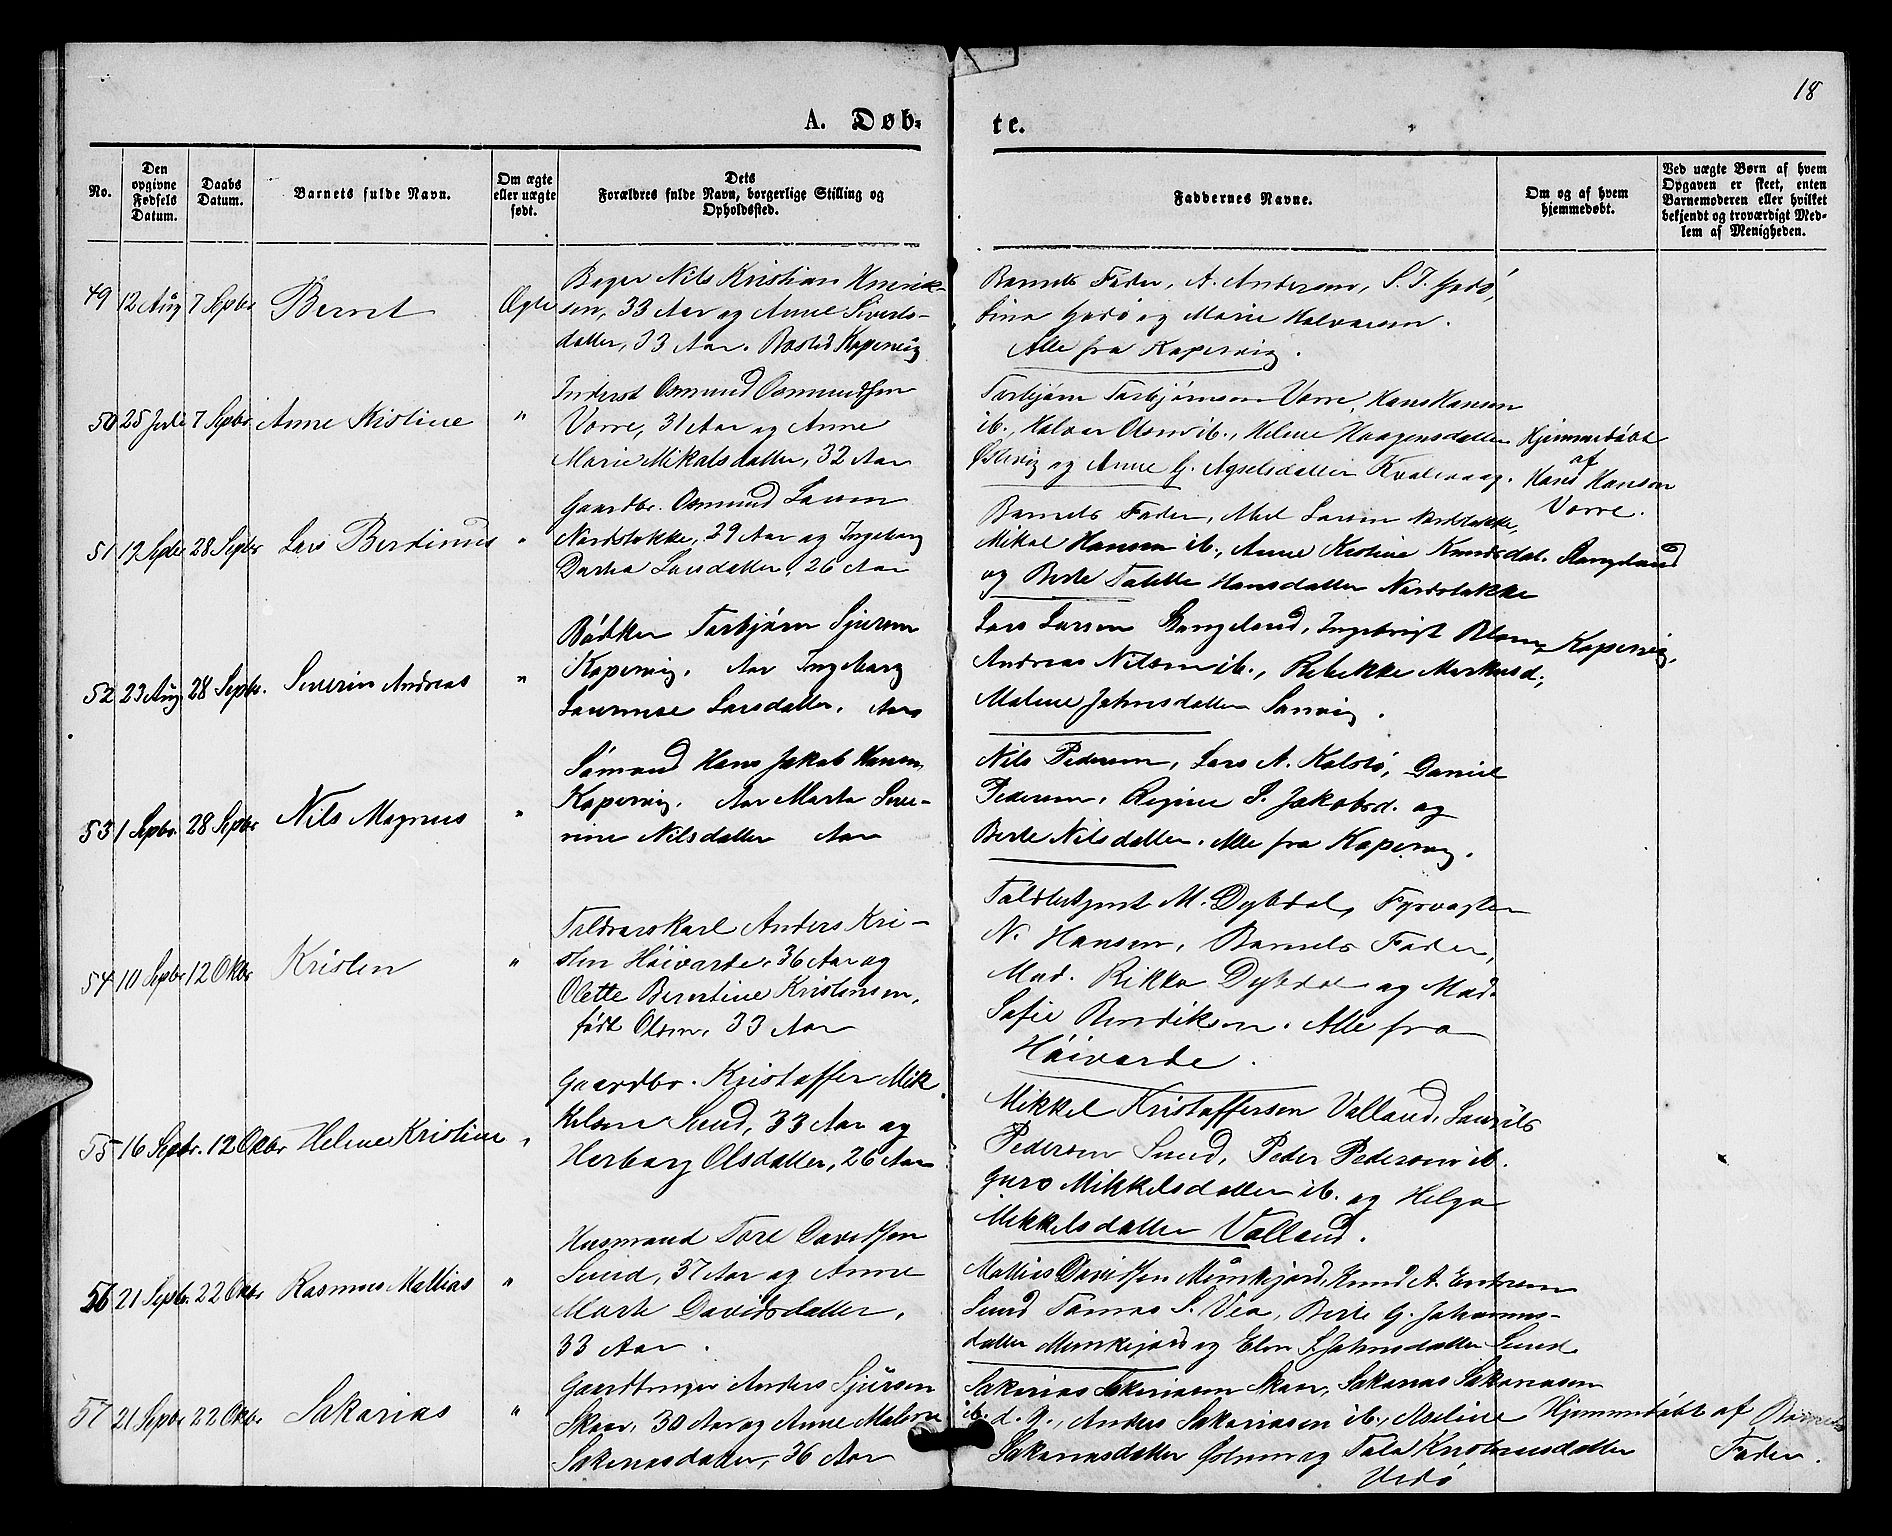 18
A. Døb-
te.
No.
Den
opgivne
Fødsels
Datum.
Daabs
Datum.
Barnets fulde Navn.
Om ægte
eller uægte
født.
Dets
Forældres fulde Navn, borgerlige Stilling og
Opholdssted.
Faddernes Navne.
Om og af hvem
hjemmedøbt.
Ved uægte Børn af hvem
Opgaven er skeet, enten
Barnemoderen eller hvilket
bekjendt og troværdigt Med-
lem af Menigheden.
49 12 Aug 7 Sepbr Bernt Ægte
Bager Nils Kristian Henrik-
sen, 33 Aar og Anne Siverts-
datter, 33 Aar. Bosted Kopervig
Barnets Fader, A. Andersen, S. T. Godø,
Sina Godø og Marie Halvorsen.
Alle fra Kopervig.
50 25 Juli 7 Sepbr. Anne Kistine "
Inderst Osmund Osmundsen
Vorre, 31 Aar og Anne
Marie Mikalsdatter, 32 Aar
Torbjørn Torbjørnsen Vorre, Hans Hansen
ib., Halvor Olsen ib., Helene Haagensdatter
og Anne G. Kvalevaag.
Hjemmedøbt
af
Hans Hanson
Vorre.
51 12 Sepbr 28 Sepbr Lars Berdinus "
Gaardbr. Osmund Larsen
Nordstokke, 29 Aar og Ingeborg
Dortea Larsdatter, 26 Aar
Barnets Fader, Larsen Nordstokke,
Mikal Hansen ib., Anne Kistine Knudsdat. Stangeland
og Berte Tolette Hansdatter Nordstokke
52 23 Aug 28 Sepbr. Severin Andreas "
Bødker Torbjørn Sjursen
Kopervig, Aar Ingeborg
Laurense Larsdatter. Aar
Lars Larsen Stangeland, Ingebrigt Kopervig,
Andreas Nilsen ib., Rebekke Markusd.,
Malene Johnsdatter
53 1 Sepbr. 28 Sepbr Nils Magnus "
Sømand Hans Jakob Hansen,
Kopervig. Aar Marta Seve-
rine Nilsdatter Aar
Nils Pedersen, Lars A. Kolstø, Daniel
Pedersen, Regine S. Jakobsd. og
Berte Nilsdatter. Alle fra Kopervig.
54 10 Sepbr 12 Okbr Kristen "
Toldvorskarl Anders Kri-
sten Høivarde, 36 Aar og
Olette Berentine Kristensen,
født Olsen, 33 Aar
M. Dybdal, Fyrvogter
N. Hansen, Barnets Fader,
Mad. Rikka Dybdal og Mad.
Sofie Bendiksen. Alle fra
Høivarde.
55 16 Sepbr. 12 Okbr Helene Kristine "
Gaardbr. Kristoffer Mik
kelsen Sund, 33 Aar og
Herborg Olsdatter, 26 Aar
Mikkel Kristoffersen Valland, Laurits
Pedersen Sund, Peder Pedersen ib.
Guro Mikkelsdatter ib. og Helga
Mikkelsdatter Valland.
56 21 Sepbr. 22 Okbr Rasmus Mattias "
Husmand Tore Davidsen
Sund, 37 Aar og Anne
Marte Davidsdatter,
33 Aar.
Mattias Davidsen Munkejord, Knud A.
Sund Tomas S. Vea, Berte G. Johannes-
datter Munkejord og Elen S. Johnsdatter Sund
57 21 Sepbr 22 Okbr. Sakarias "
Gaardbruger Anders Sjursen
Skaar, 30 Aar og Anne Malene
Sakariasdatter, 36 Aar
Sakarias Sakariasen Skaar, Sakarias Sakariasen
ib. d. y., Anders Sakariasen ib., Aseline
Sakariasdatter og Tala Kristensdatter
Vedø
Hjemmedøbt af Barnets
Fader.